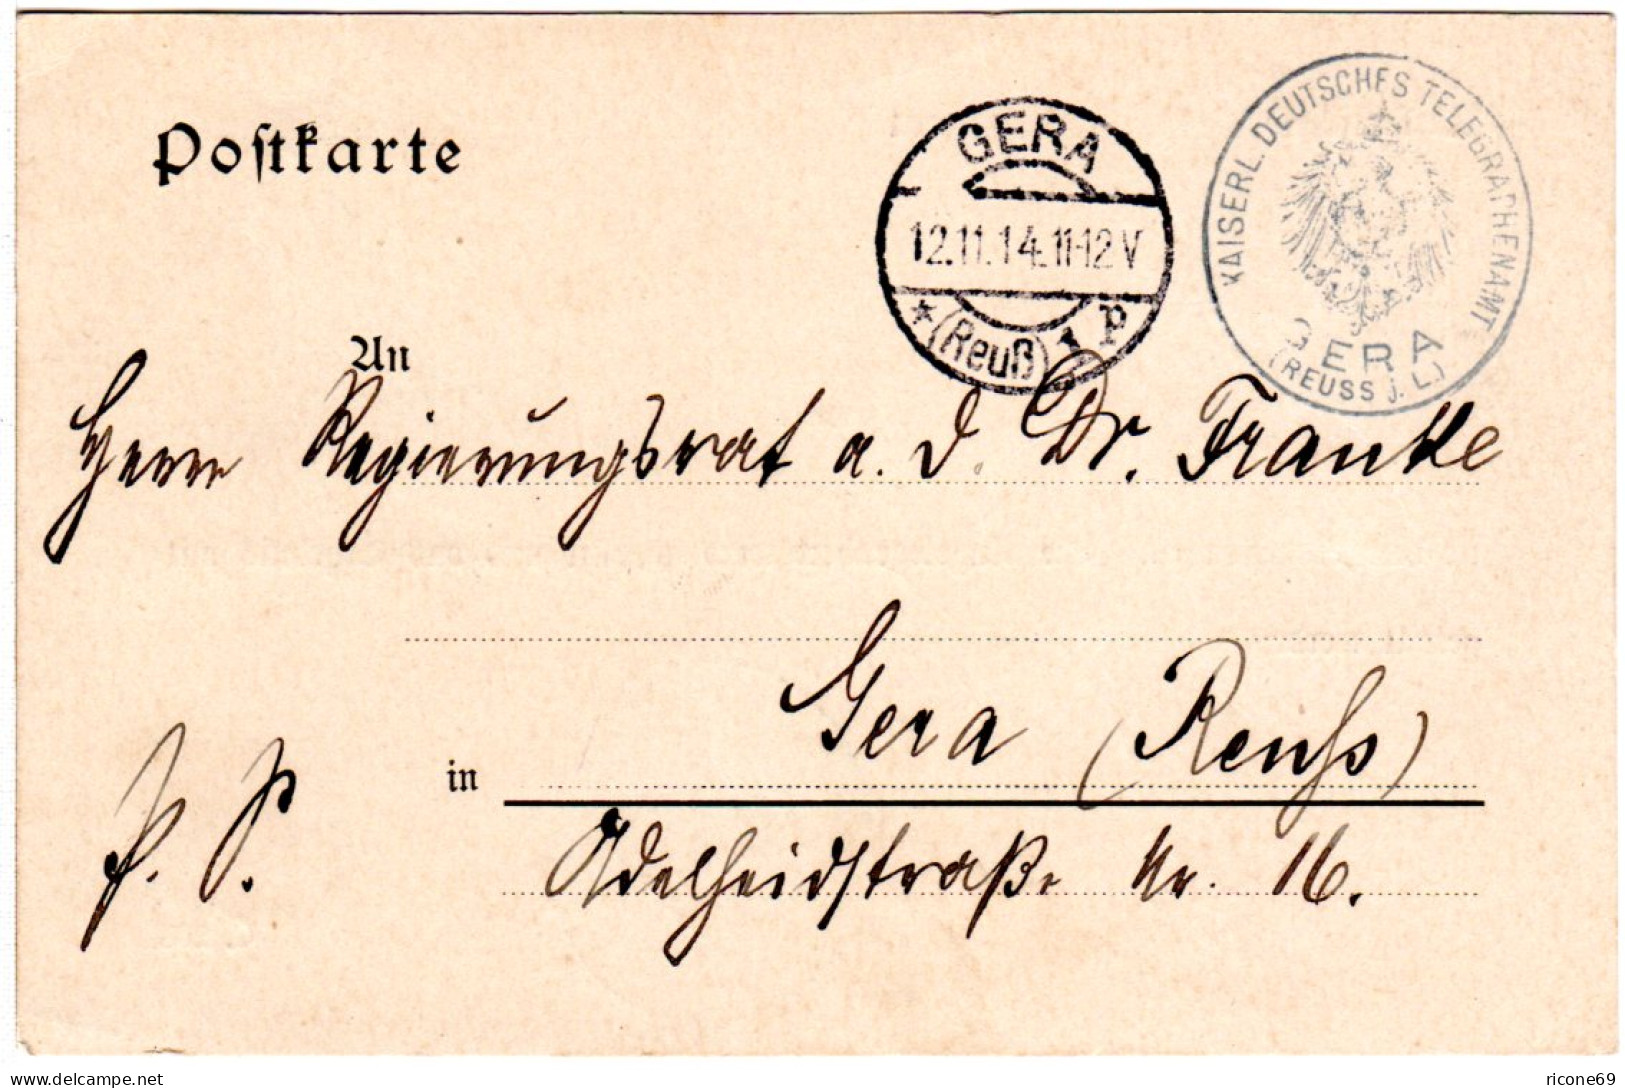 Postkarte
GERA
12.11.14.11-12V
* (Reuß) 1 p
KAISERL. DEUTSCHES TELEGRAPHENAMT
GERA
(REUSS j. L.)
An
Herrn Regierungsrat a. D. Dr. Franke
Gera (Reuss)
in
Adelheidstraße Nr. 16.
delcampe.net
ricone69